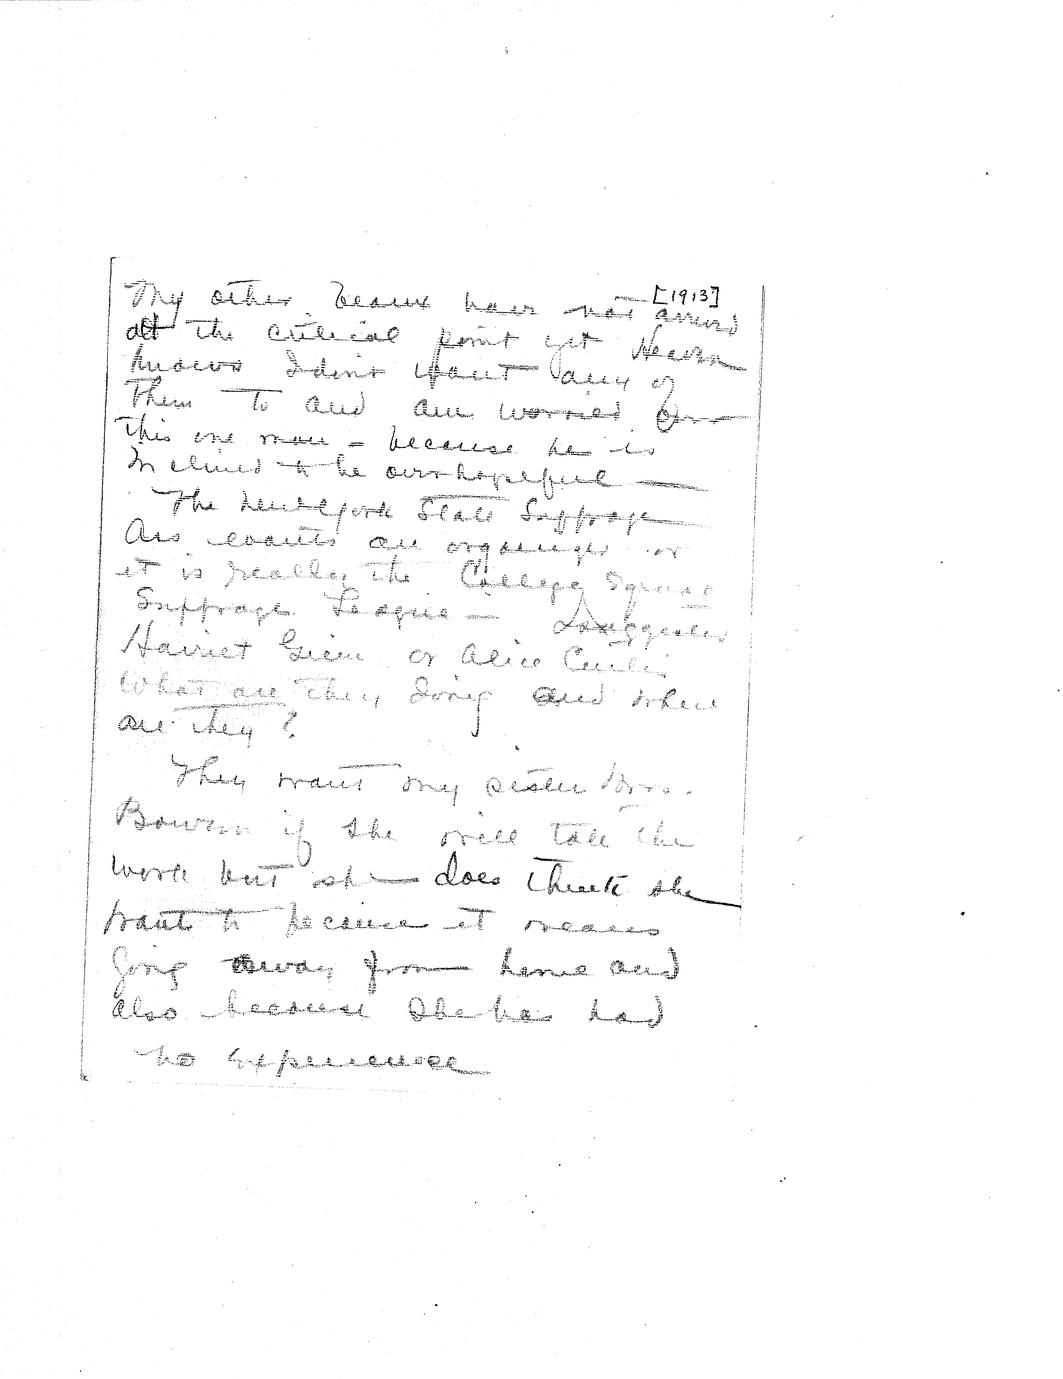 [1913]
My other beaux have not arrived
at the critical point yet Heaven
knows I don't want any of
Them to and am worried over
this one man – because he is
Inclined to be overhopeful —
The New York State Suffrage
Ass wants an organizer or
it is really the College Equal
Suffrage League — I suggested
Harriet or Alice
What are they doing and where
are they?
They want my sister Mrs.
Bowen if she will take the
work but she does think she
want to because it means
Going away from home and
also because she has had
no experience